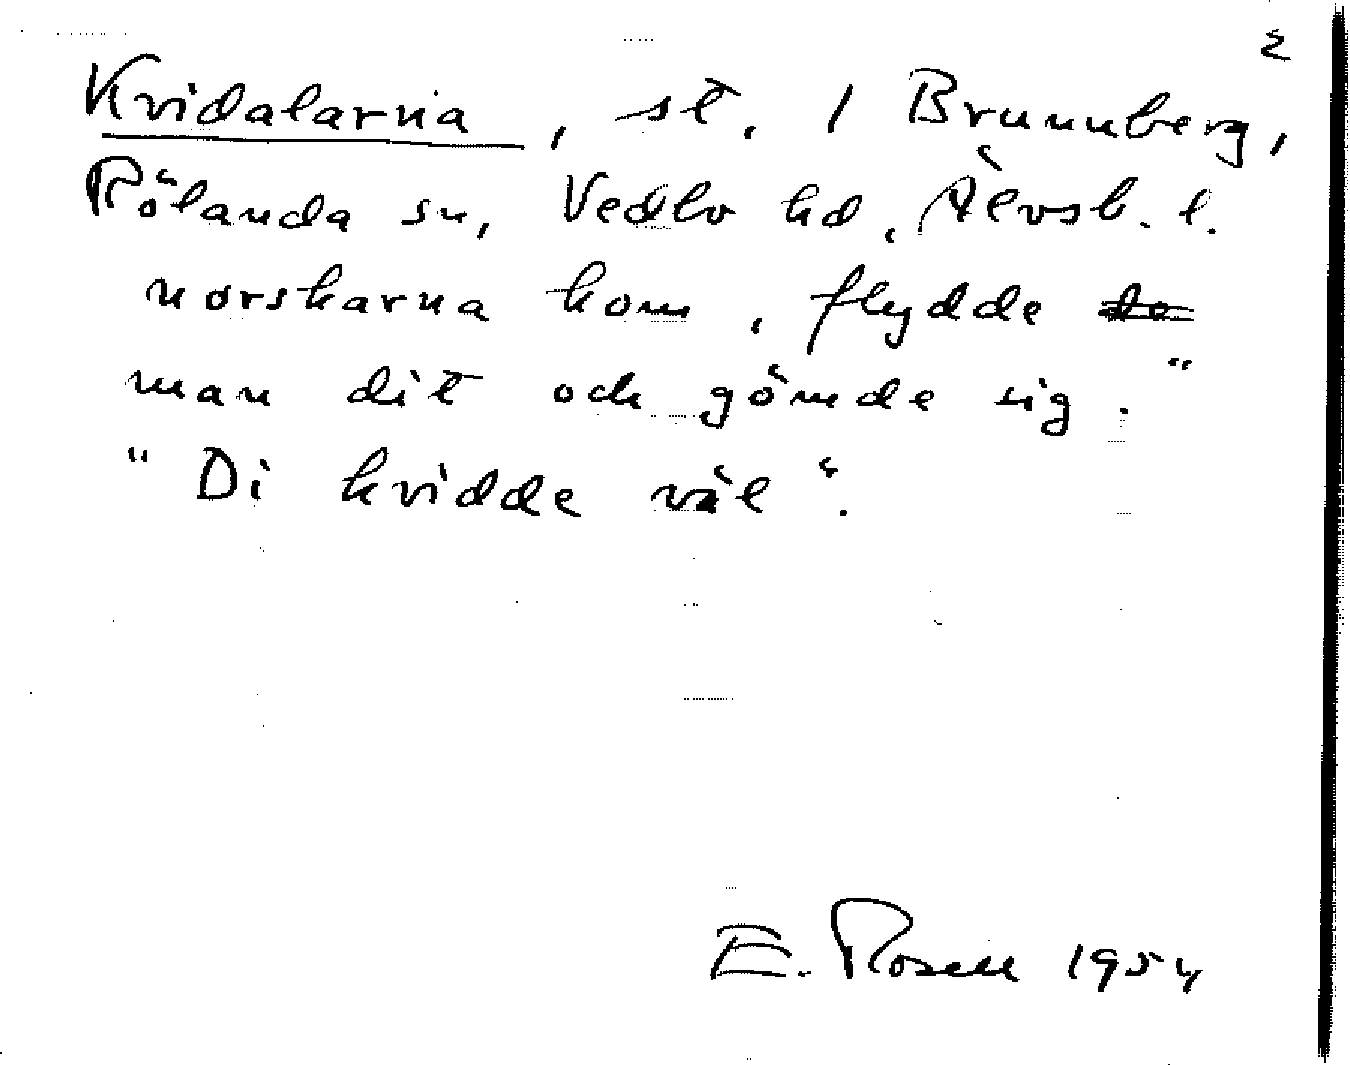 2
Kvidalarna, st. / Brunnberg,
Rölanda sn, Vedbo hd, Älvsb. l.
norskarna kom, flydde de
man dit och gömde sig."
"Di kvidde väl".
E. Rosell 1954